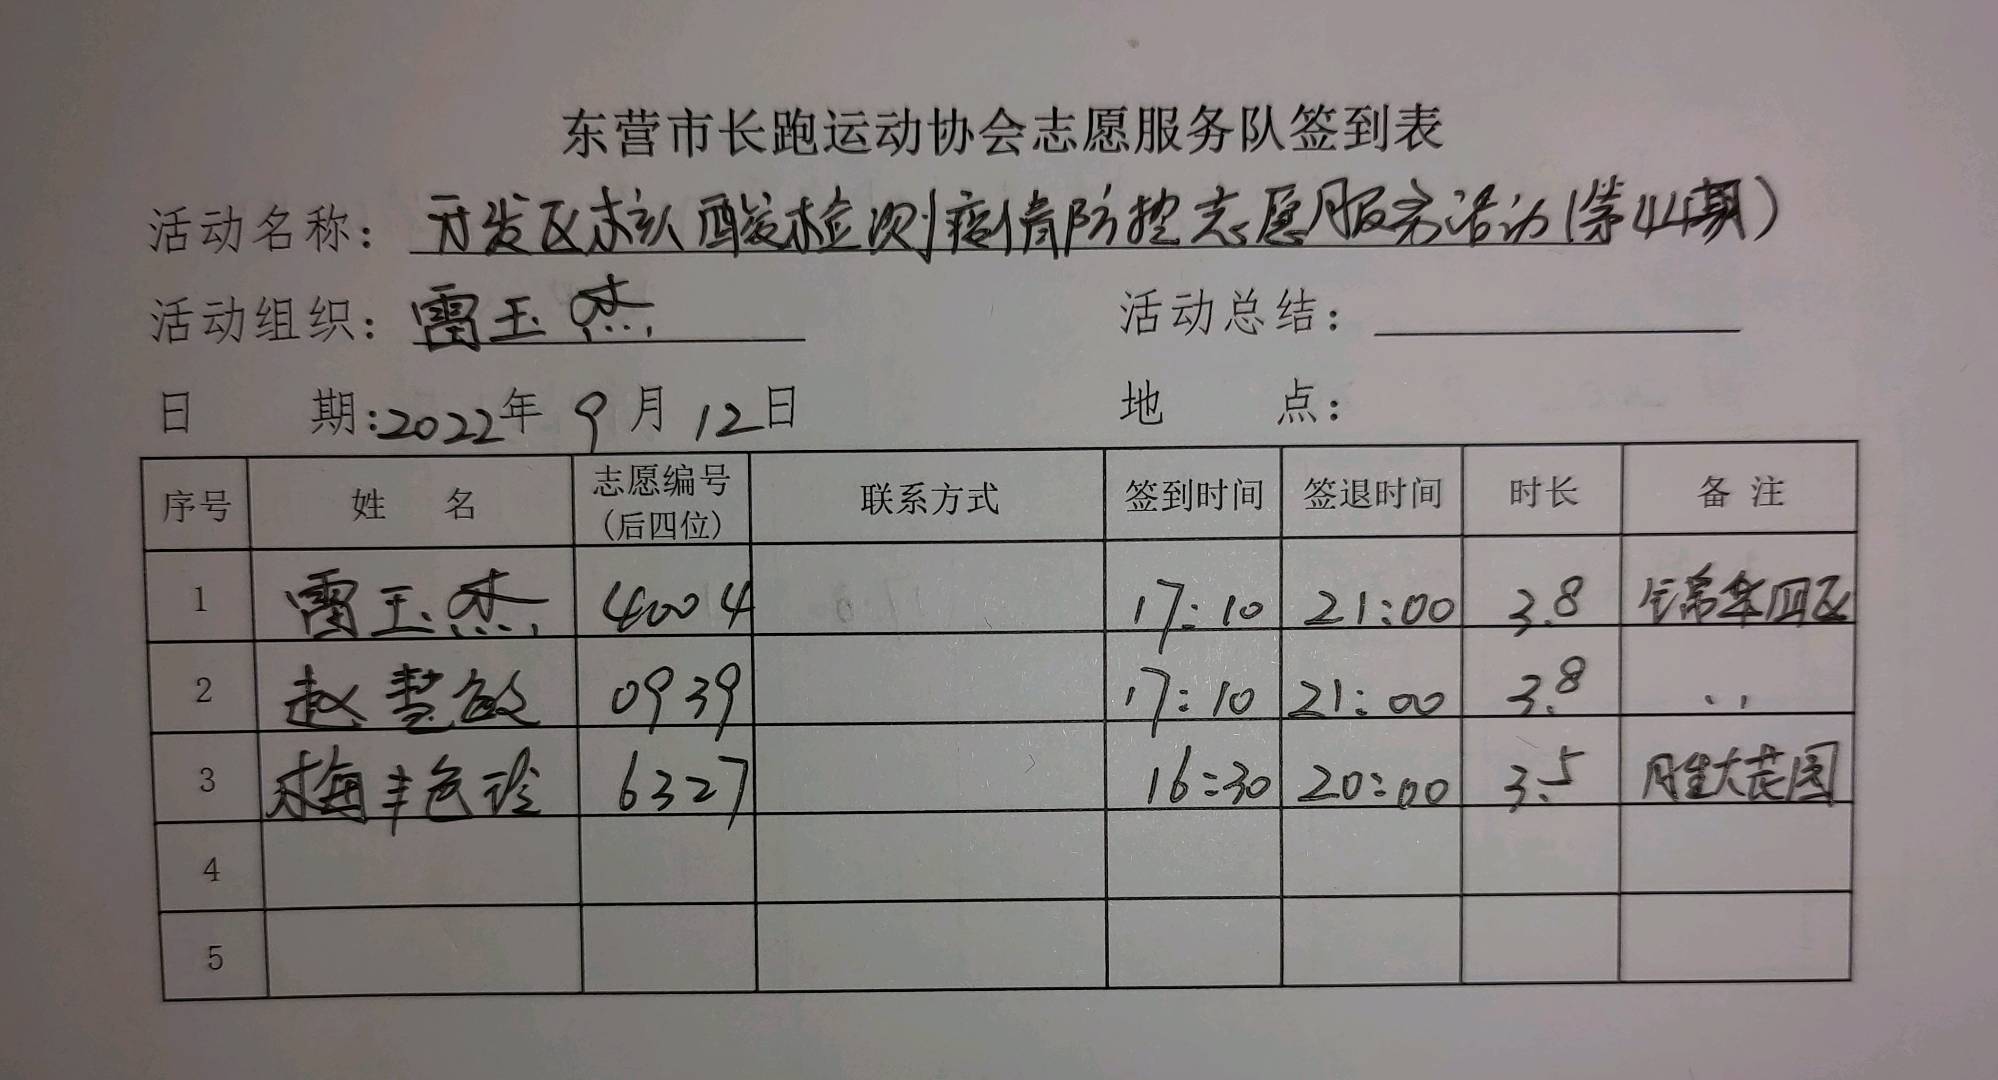 东营市长跑运动协会志愿服务队签到表
活动名称：开发区核酸检测疫情防控志愿服务活动(第44期)
活动组织：雷玉杰 活动总结：
日 期：2022年 9月 12日 地 点：
序号 姓 名 志愿编号(后四位) 联系方式 签到时间 签退时间 时长 备 注
1 雷玉杰 4004 17:10 21:00 3.8 锦华四区
2 赵慧敏 0939 17:10 21:00 3.8 〃
3 梅丰艳玲 6327 16:30 20:00 3.5 胜大花园
4
5